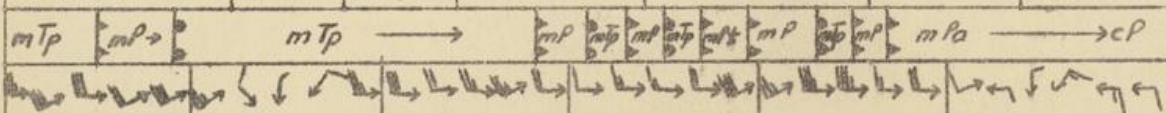 mTp mP → mTp → mP mTp mP mTp mPk mP mTp mP mPa → cP